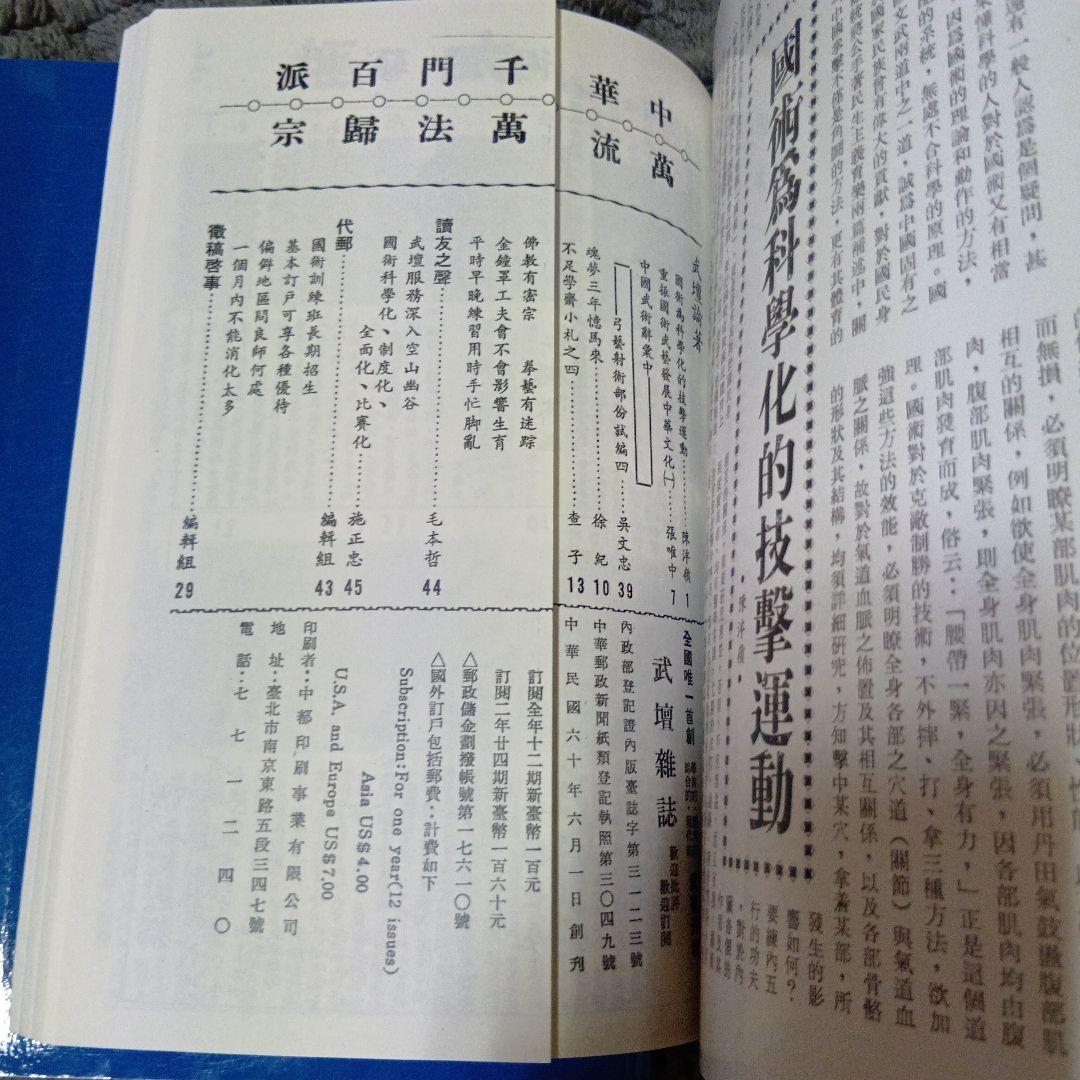 國術為科學化的技擊運動
陳泮嶺
還有一般人認為是個疑問，甚
因為國術的理論和動作的方法，
的系統，無處不合科學的原理。國
文武兩道中之一道，誠為中國固有之
國家民族會有偉大的貢獻，對於國民身
而無損，必須明瞭某部肌肉的位置形狀
相互的關係，例如欲使全身肌肉緊張，必須用丹田氣鼓盪腹部肌
肉，腹部肌肉緊張，則全身肌肉亦因之緊張，因各部肌肉均由腹
部肌肉發育而成，俗云：「腰帶一緊，全身有力，」正是這個道
理。國術對於克敵制勝的技術，不外摔、打、拿三種方法，欲加
強這些方法的效能，必須明瞭全身各部之穴道（關節）與氣道血
脈之關係，故對於氣道血脈之佈置及其相互關係，以及各部骨骼
的形狀及其結構，均須詳細研究，方知擊中某穴，拿着某部，所
發生的影
響如何？
要練內五
行的功夫
中華
萬流
千門百派
萬法歸宗
武壇論著
國術為科學化的技擊運動……陳泮嶺 1
重振國術武藝發展中華文化㈠……張唯中 7
中國武術辭彙中
——弓藝射術部份試編四……吳文忠 39
魂夢三年憶馬來……徐紀 10
不足學齋小札之四……查子 13
佛教有密宗 拳藝有迷踪
金鐘罩工夫會不會影響生育
平時早晚練習用時手忙脚亂
讀友之聲……毛本哲 44
武壇服務深入空山幽谷
國術科學化、制度化、
全面化、比賽化……施正忠 45
代郵……編輯組 43
國術訓練班長期招生
基本訂戶可享各種優待
偏僻地區問良師何處
一個月內不能消化太多
徵稿啓事……編輯組 29
全國唯一首創
武壇雜誌
歡迎批評
歡迎訂閱
內政部登記證內版臺誌字第三一二三號
中華郵政新聞紙類登記執照第三〇四九號
中華民國六十年六月一日創刊
訂閱全年十二期新臺幣一百元
訂閱二年廿四期新臺幣一百六十元
△郵政儲金劃撥帳號第一七六一〇號
△國外訂戶包括郵費・計費如下
Subscription:For one year(12 issues)
Asia US$4.00
U.S.A. and Europe US$7.00
印刷者：中都印刷事業有限公司
地址：臺北市南京東路五段三四七號
電話：七七一二四〇